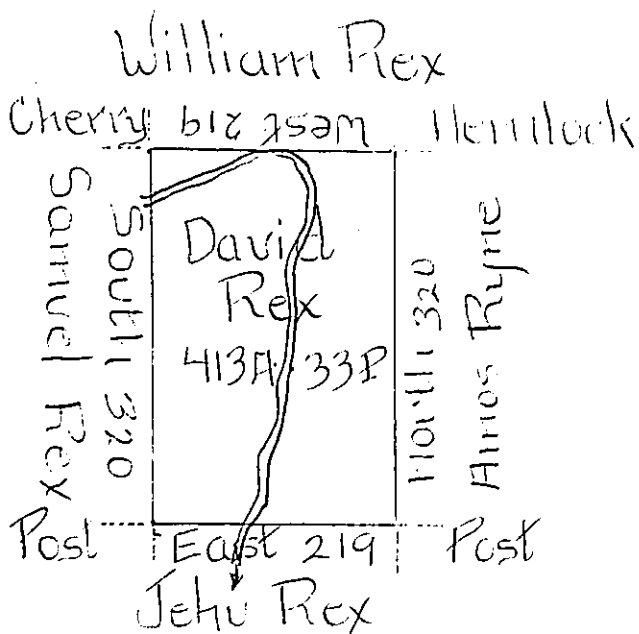 William Rex
Cherry West 219 Hemlock
Samuel Rex
South 320
David
Rex
413A 33P
North 320
Amos Ryme
Post East 219 Post
Jehu Rex